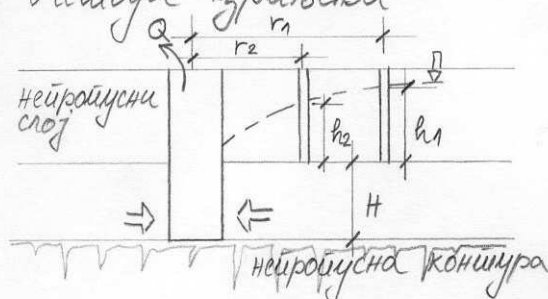 Q
r₁
r₂
непропусни
слој
h₂
h₁
H
непропусна контура